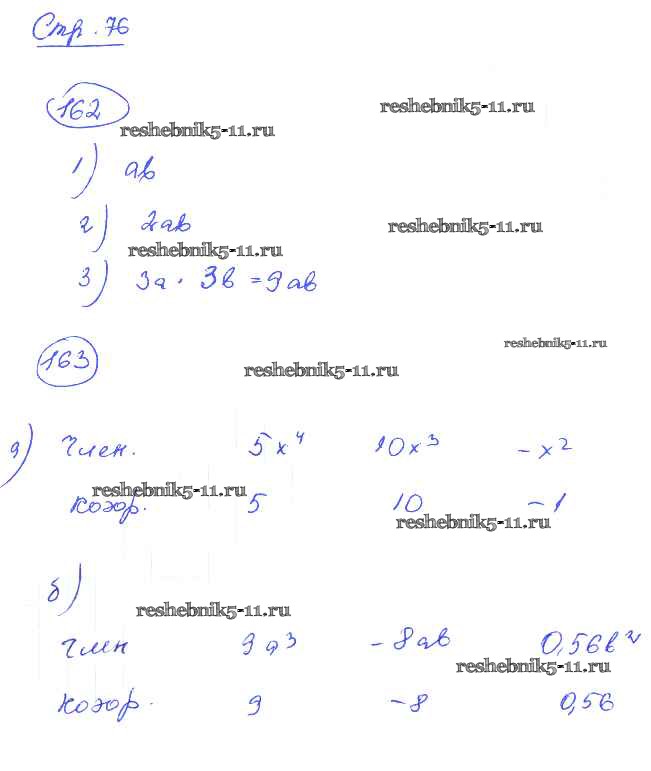 Стр. 76
162
reshebnik5-11.ru
reshebnik5-11.ru
1) ab
2) 2ab
reshebnik5-11.ru
reshebnik5-11.ru
3) 3a · 3b = 9ab
reshebnik5-11.ru
163
reshebnik5-11.ru
а) Член. 5x⁴ 10x³ -x²
reshebnik5-11.ru
коэф. 5 10 -1
reshebnik5-11.ru
б)
reshebnik5-11.ru
член 9a³ -8ab 0,56b²
reshebnik5-11.ru
коэф. 9 -8 0,56